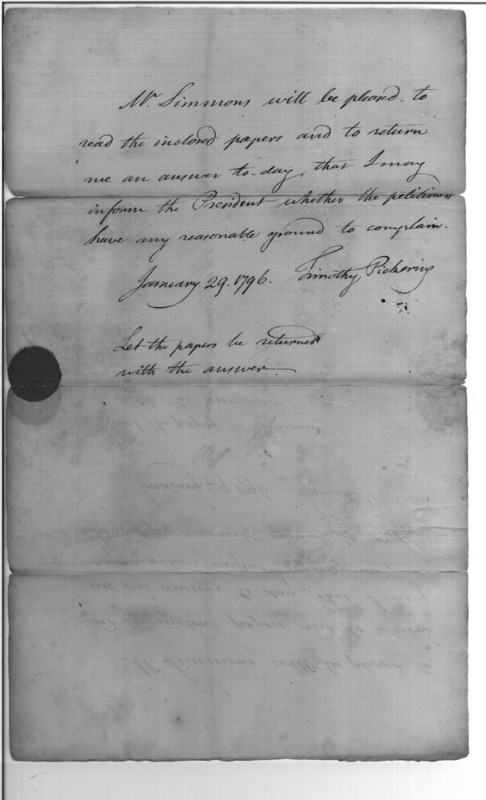 Mr Simmons will be pleased to
read the inclosed papers and to return
me an answer to-day, that I may
inform the President whether the petitioners
have any reasonable ground to complain.
January 29. 1796. Timothy Pickering
Let the papers be returned
with the answer.